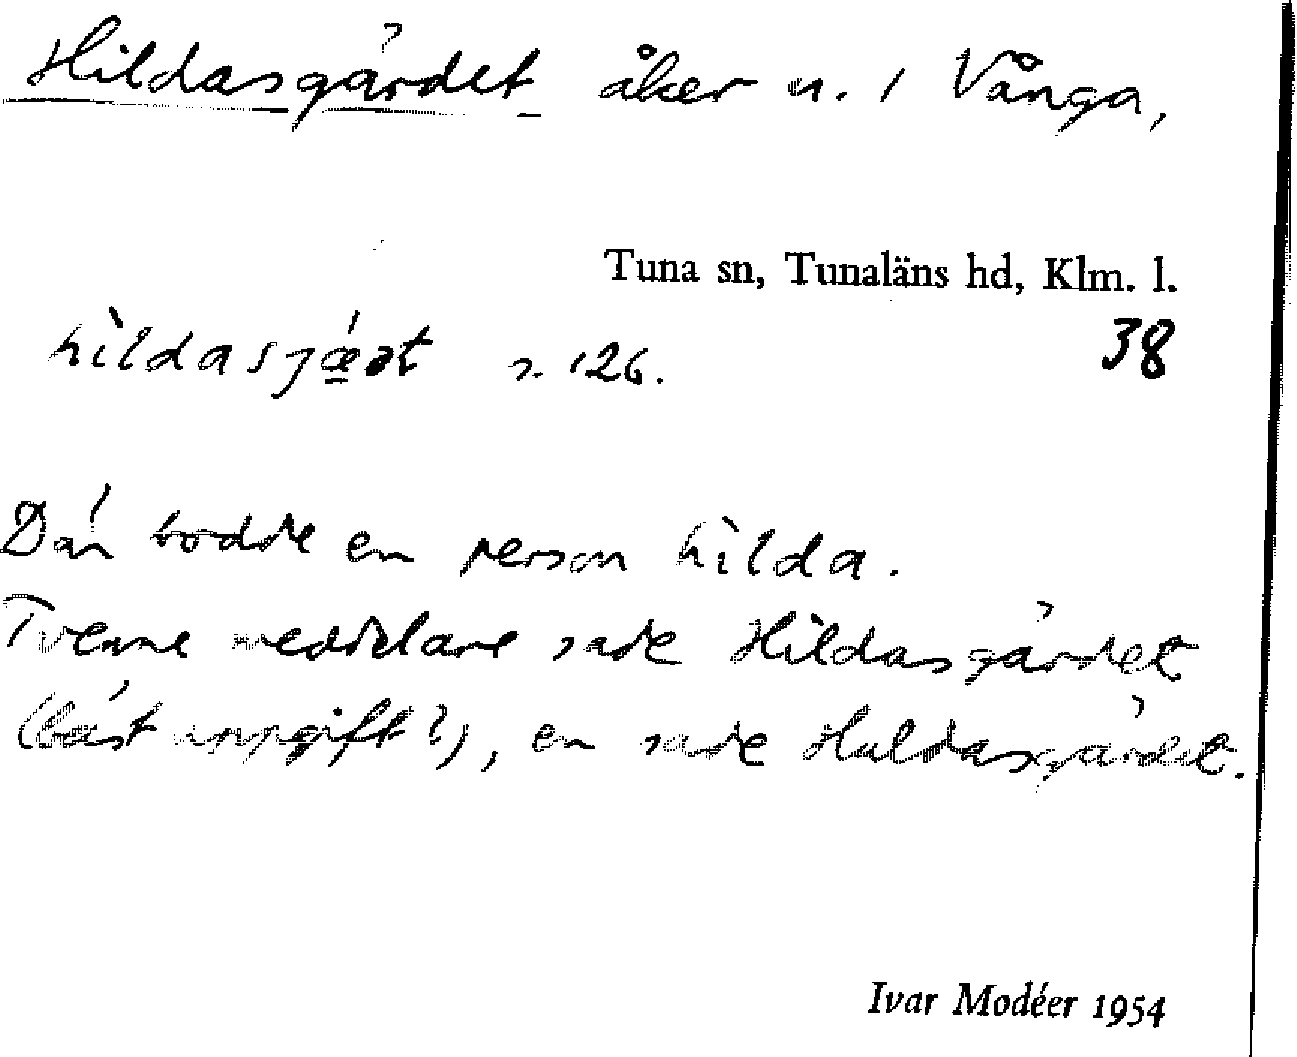 Hildasgärdet åker n. i Vånga,
Tuna sn, Tunaläns hd, Klm. l.
hìldasjǽ̱ət s. 126.
38
Där bodde en person hìlda.
Tvenne meddelare sade Hildasgärdet
(bäst uppgift?), en sade Huldasgärdet.
Ivar Modéer 1954